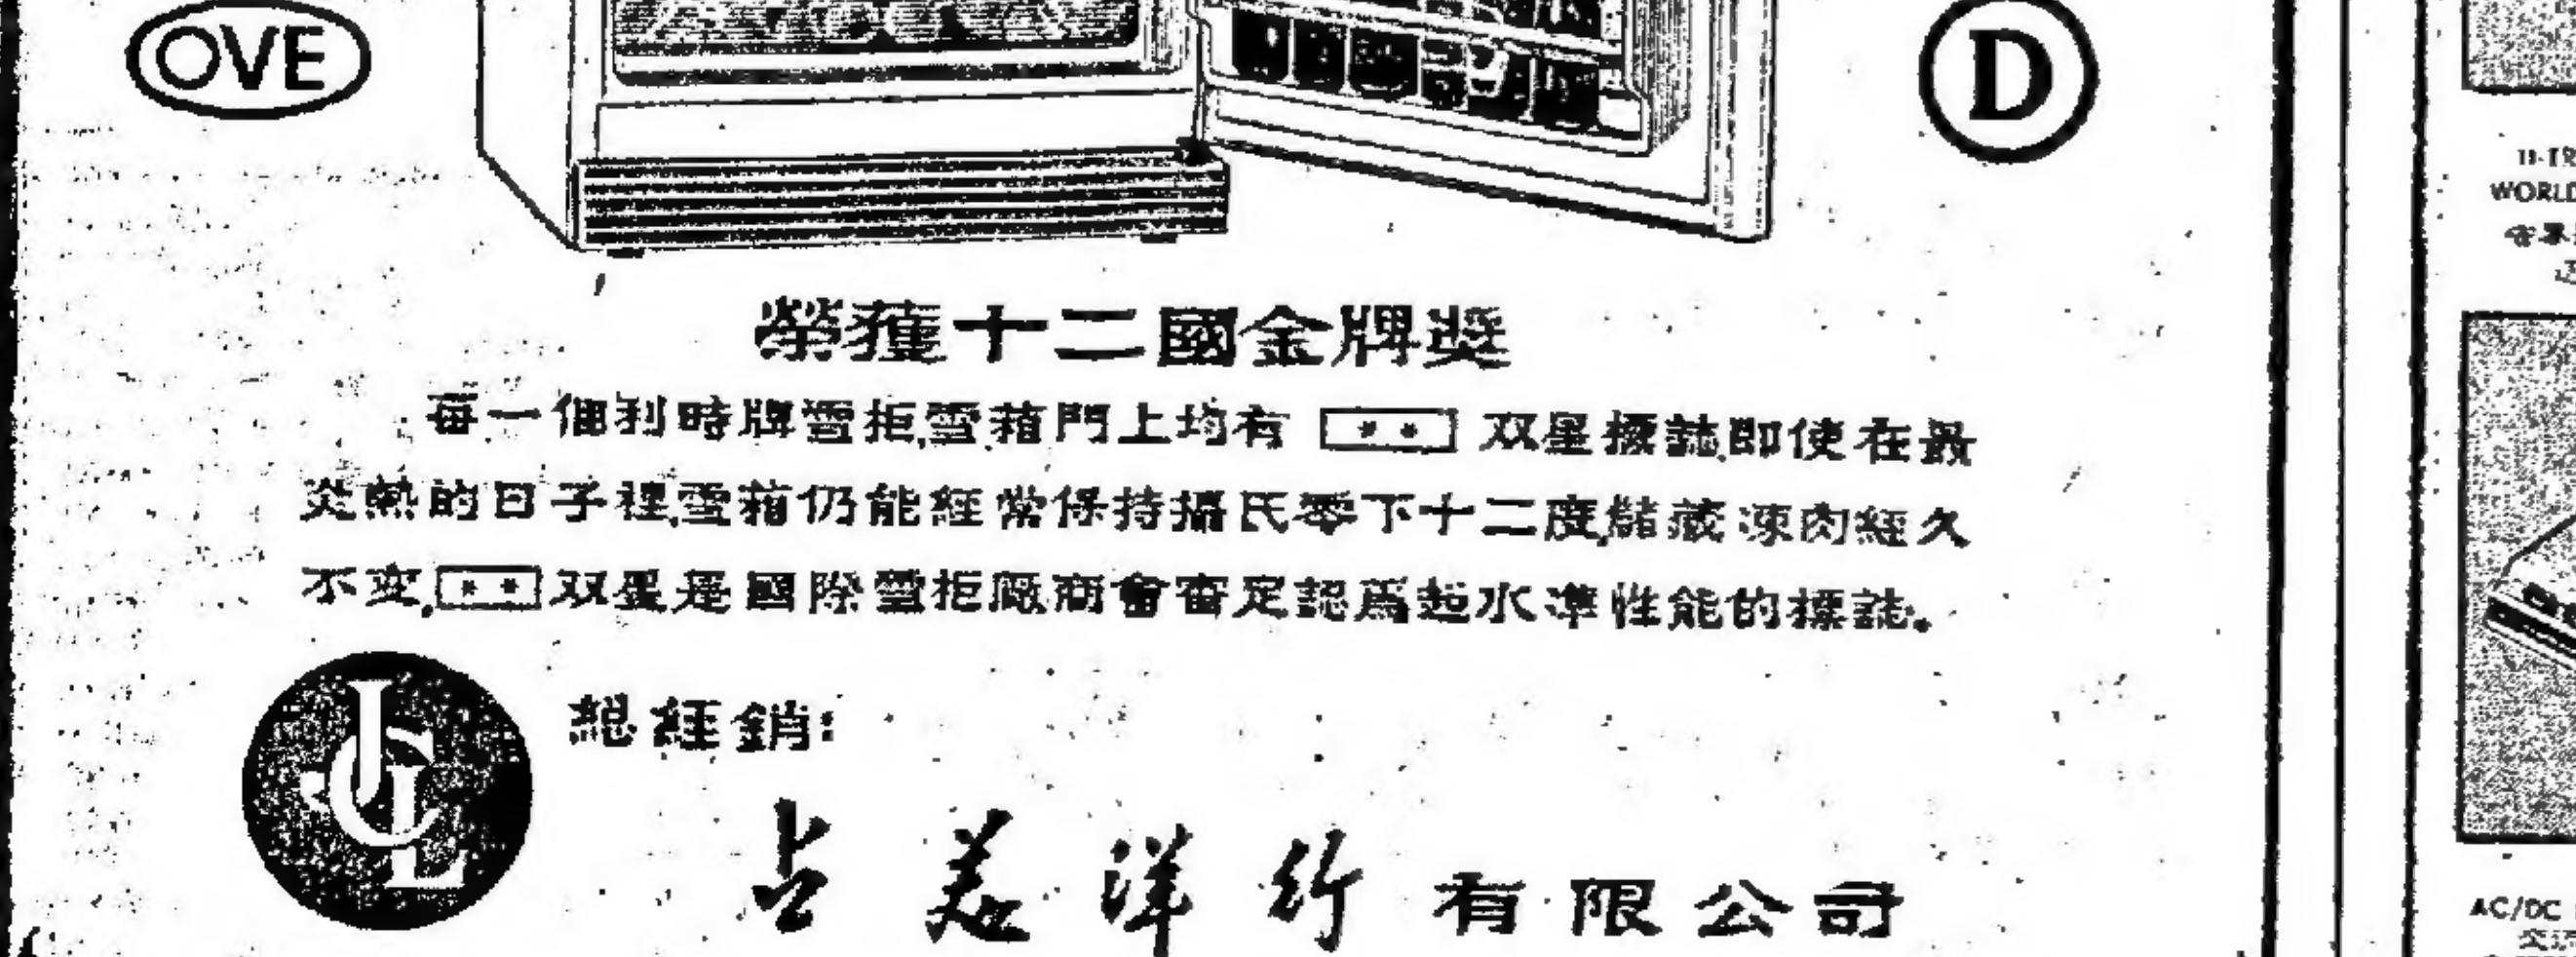 OVE
D
榮獲十二國金牌獎
每一個利時牌雪柜,雪箱門上均有 [**] 双星標誌,即使在最
炎熱的日子裡,雪箱仍能經常保持攝氏零下十二度,儲藏凍肉經久
不变,[**]双星是國際雪柜廠商會審定認爲起水準性能的標誌。
JCL
總經銷:
占美洋行有限公司
WORLD
AC/DC